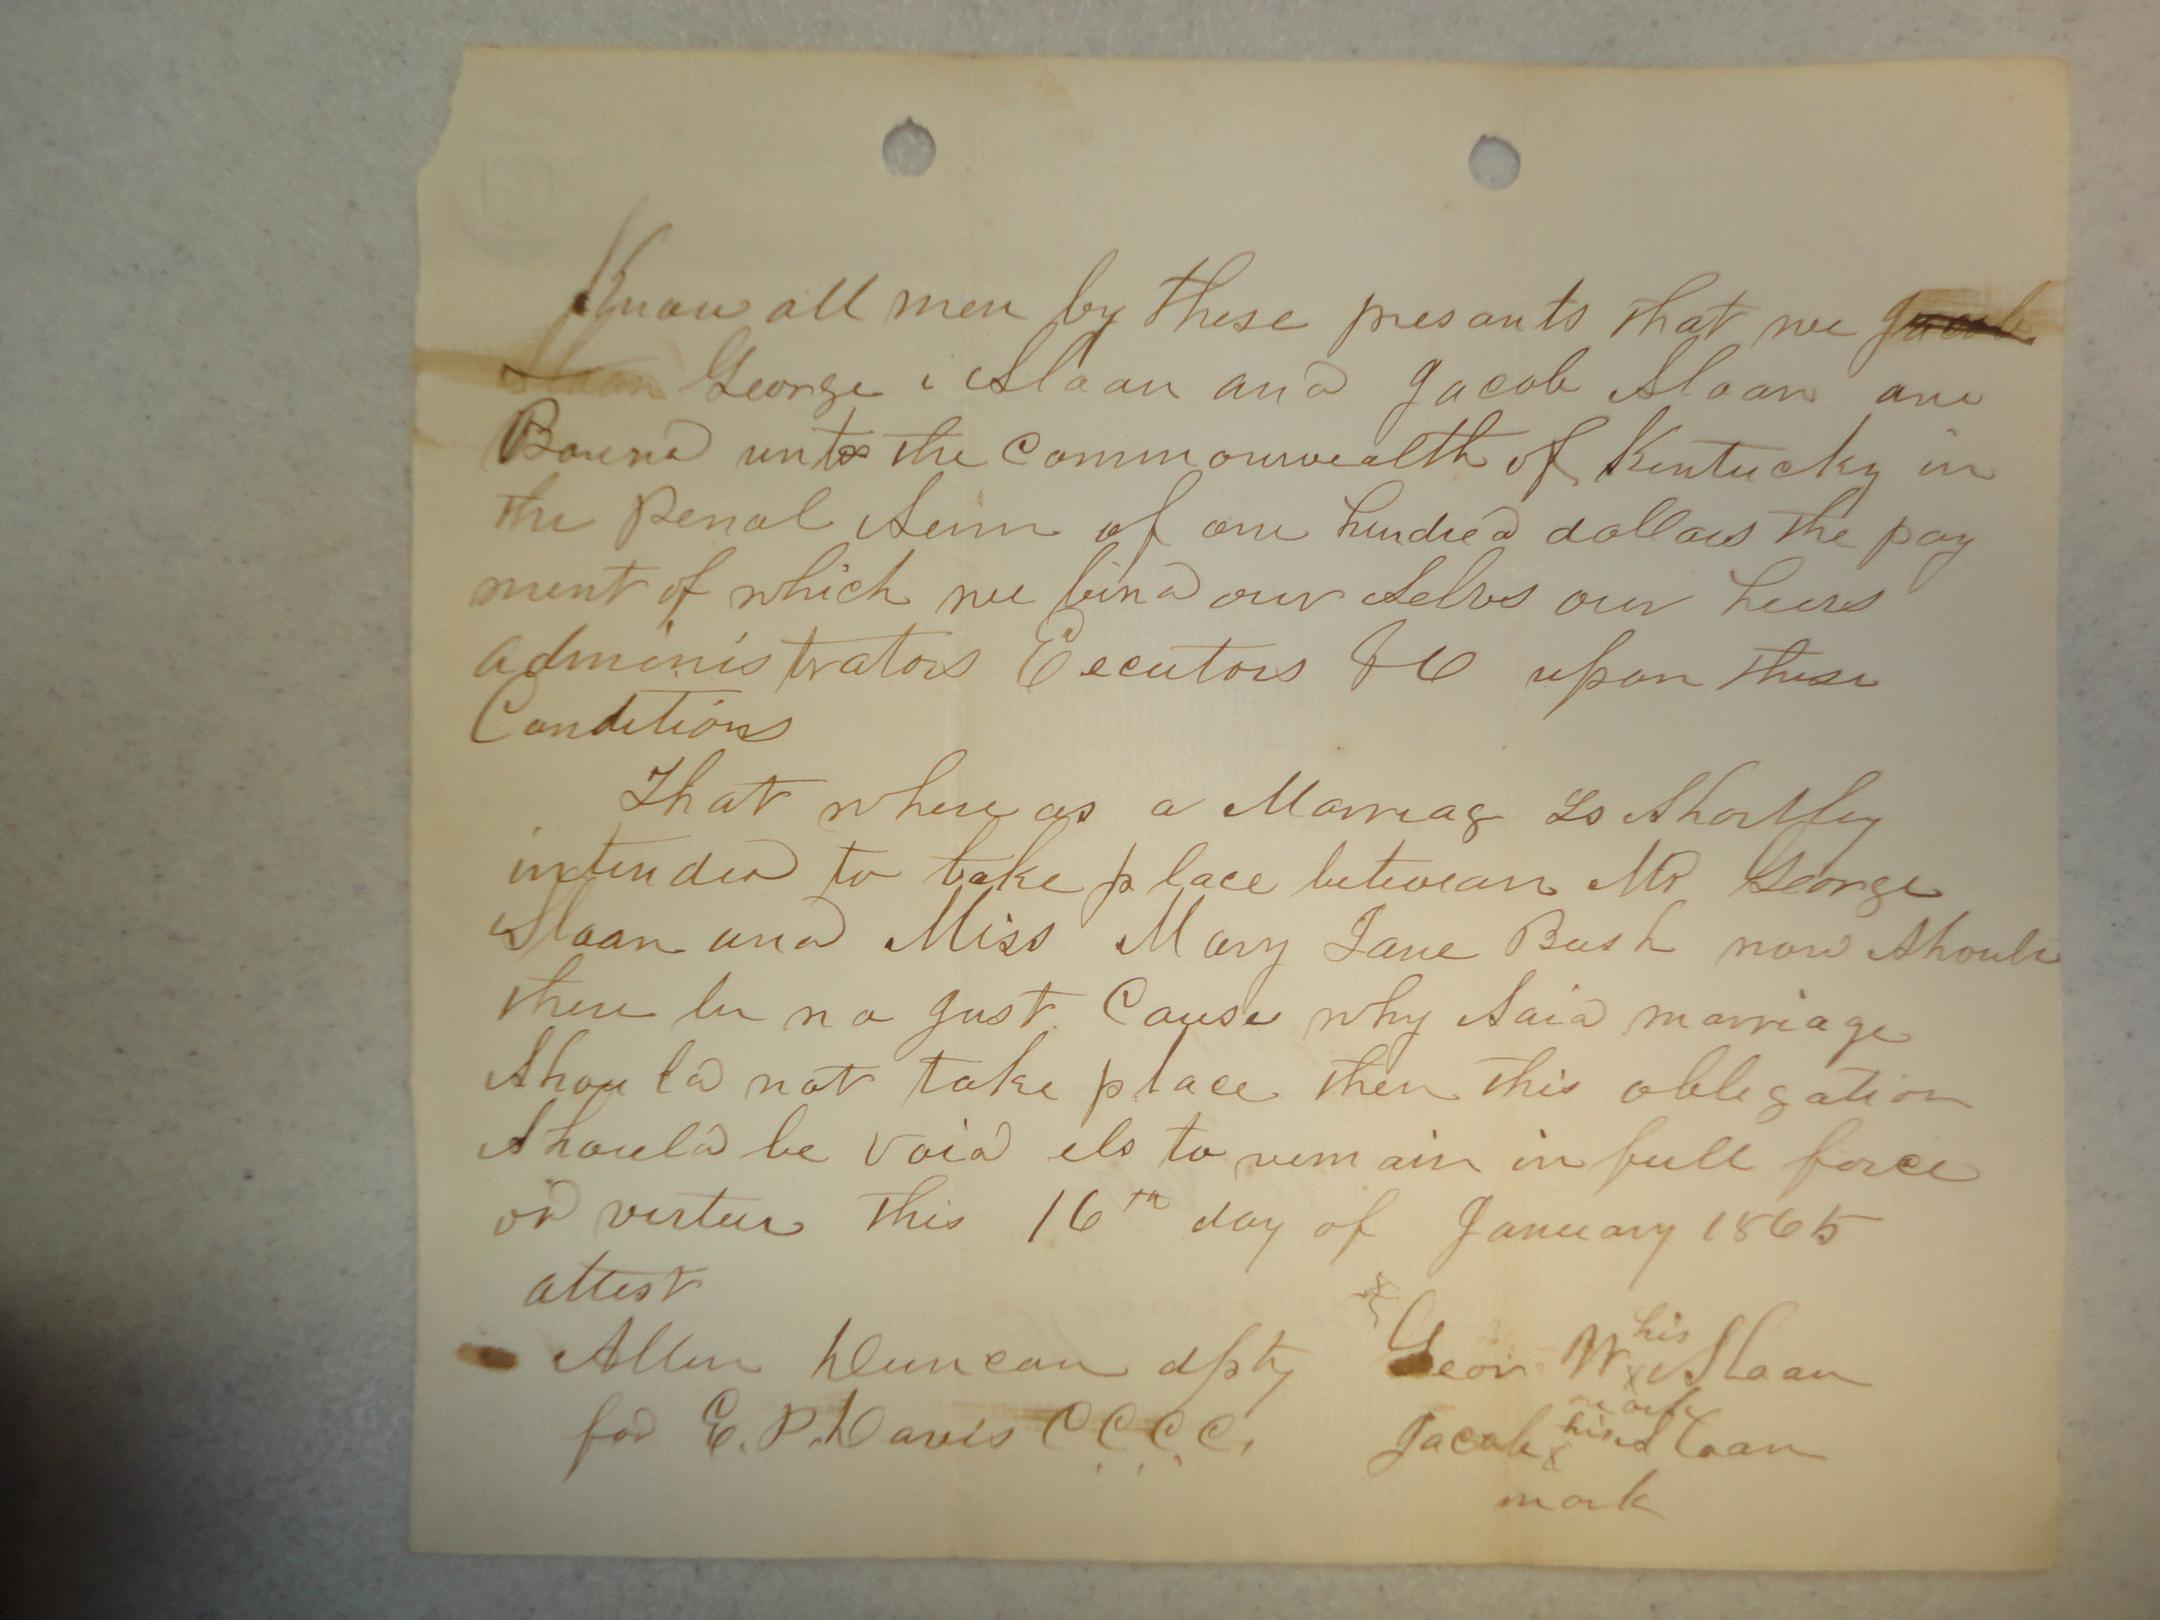 Know all men by these presants that we Jacob
Sloan George Sloan and Jacob Sloan are
Bound unto the Commonwealth of Kentucky in
the Penal Sum of one hundred dollars the pay
ment of which we bind our selvs our heers
administrators Eecutors &C upon these
Conditions
That where as a Marriag Is Shortley
intended to take place betwean Mr George
Sloan and Miss Mary Jane Bush now Should
there be no Just Cause why Said marriage
Should not take place then this obligation
Should be void els to remain in full force
or vertue this 16th day of January 1865
attest
Allen Duncan dpty Geor W his x Sloan
mark
for E. P. Davis C.C.C.C. Jacob his x Sloan
mark